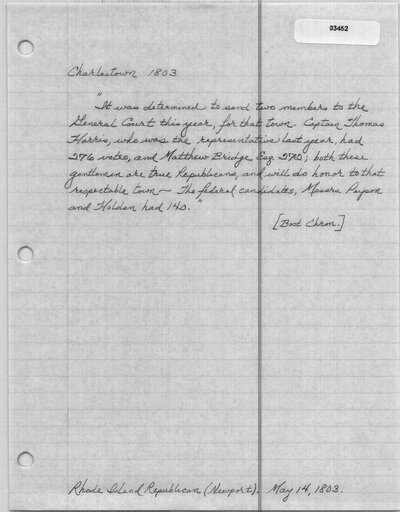 03452
Charlestown 1803
"It was determined to send two members to the
General Court this year, for that town. Captain Thomas
Harris, who was the representative last year, had
276 votes, and Matthew Bridge, Esq. 272; both these
gentlemen are true Republicans, and will do honor to that
respectable town — The federal candidates, Messrs Payson
and Holden had 140."
[Bost Chron.]
Rhode Island Republican (Newport). May 14, 1803.